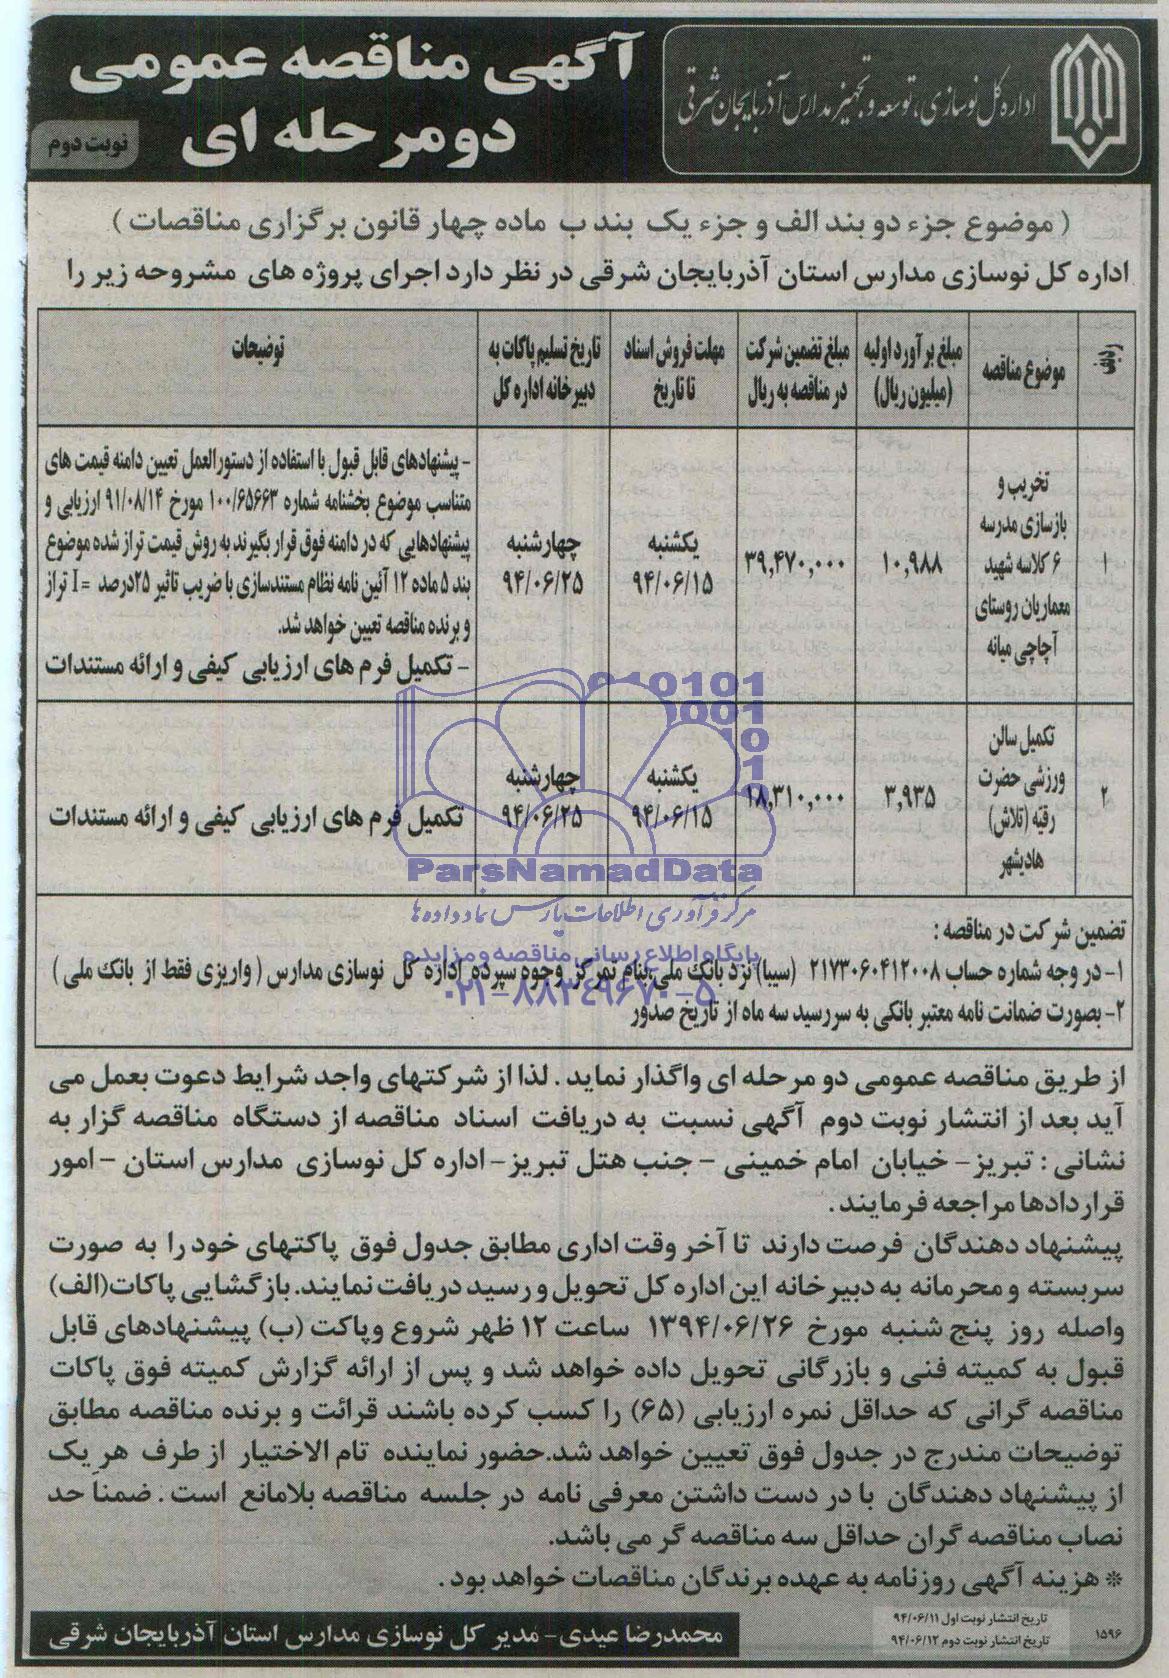 اداره کل نوسازی، توسعه و تجهیز مدارس آذربایجان شرقی
آگهی مناقصه عمومی
دو مرحله ای
نوبت دوم
( موضوع جزء دو بند الف و جزء یک بند ب ماده چهار قانون برگزاری مناقصات )
اداره کل نوسازی مدارس استان آذربایجان شرقی در نظر دارد اجرای پروژه های مشروحه زیر را
ردیف
موضوع مناقصه
مبلغ برآورد اولیه
(میلیون ریال)
مبلغ تضمین شرکت
در مناقصه به ریال
مهلت فروش اسناد
تا تاریخ
تاریخ تسلیم پاکات به
دبیرخانه اداره کل
توضیحات
۱
تخریب و
بازسازی مدرسه
۶ کلاسه شهید
معماریان روستای
آچاچی میانه
۱۰,۹۸۸
۳۹,۴۷۰,۰۰۰
یکشنبه
۹۴/۰۶/۱۵
چهارشنبه
۹۴/۰۶/۲۵
- پیشنهادهای قابل قبول با استفاده از دستورالعمل تعیین دامنه قیمت های
متناسب موضوع بخشنامه شماره ۱۰۰/۶۵۶۶۳ مورخ ۹۱/۰۸/۱۴ ارزیابی و
پیشنهادهایی که در دامنه فوق قرار بگیرند به روش قیمت تراز شده موضوع
بند ۵ ماده ۱۲ آئین نامه نظام مستندسازی با ضریب تاثیر ۲۵درصد = I تراز
و برنده مناقصه تعیین خواهد شد.
- تکمیل فرم های ارزیابی کیفی و ارائه مستندات
۲
تکمیل سالن
ورزشی حضرت
رقیه (تلاش)
هادیشهر
۳,۹۳۵
۱۸,۳۱۰,۰۰۰
یکشنبه
۹۴/۰۶/۱۵
چهارشنبه
۹۴/۰۶/۲۵
تکمیل فرم های ارزیابی کیفی و ارائه مستندات
ParsNamadData
مرکز فرآوری اطلاعات پارس نماد داده ها
پایگاه اطلاع رسانی مناقصه و مزایده
۰۲۱-۸۸۳۴۹۶۷۰-۵
تضمین شرکت در مناقصه :
۱- در وجه شماره حساب ۲۱۷۳۰۶۰۴۱۲۰۰۸ (سیبا) نزد بانک ملی بنام تمرکز وجوه سپرده اداره کل نوسازی مدارس ( واریزی فقط از بانک ملی )
۲- بصورت ضمانت نامه معتبر بانکی به سررسید سه ماه از تاریخ صدور
از طریق مناقصه عمومی دو مرحله ای واگذار نماید . لذا از شرکتهای واجد شرایط دعوت بعمل می
آید بعد از انتشار نوبت دوم آگهی نسبت به دریافت اسناد مناقصه از دستگاه مناقصه گزار به
نشانی : تبریز- خیابان امام خمینی - جنب هتل تبریز- اداره کل نوسازی مدارس استان - امور
قراردادها مراجعه فرمایند .
پیشنهاد دهندگان فرصت دارند تا آخر وقت اداری مطابق جدول فوق پاکتهای خود را به صورت
سربسته و محرمانه به دبیرخانه این اداره کل تحویل و رسید دریافت نمایند. بازگشایی پاکات(الف)
واصله روز پنج شنبه مورخ ۱۳۹۴/۰۶/۲۶ ساعت ۱۲ ظهر شروع وپاکت (ب) پیشنهادهای قابل
قبول به کمیته فنی و بازرگانی تحویل داده خواهد شد و پس از ارائه گزارش کمیته فوق پاکات
مناقصه گرانی که حداقل نمره ارزیابی (۶۵) را کسب کرده باشند قرائت و برنده مناقصه مطابق
توضیحات مندرج در جدول فوق تعیین خواهد شد.حضور نماینده تام الاختیار از طرف هر یک
از پیشنهاد دهندگان با در دست داشتن معرفی نامه در جلسه مناقصه بلامانع است . ضمناً حد
نصاب مناقصه گران حداقل سه مناقصه گر می باشد.
* هزینه آگهی روزنامه به عهده برندگان مناقصات خواهد بود .
تاریخ انتشار نوبت اول ۹۴/۰۶/۱۱
تاریخ انتشار نوبت دوم ۹۴/۰۶/۱۲
۱۵۹۶
محمدرضا عیدی - مدیر کل نوسازی مدارس استان آذربایجان شرقی